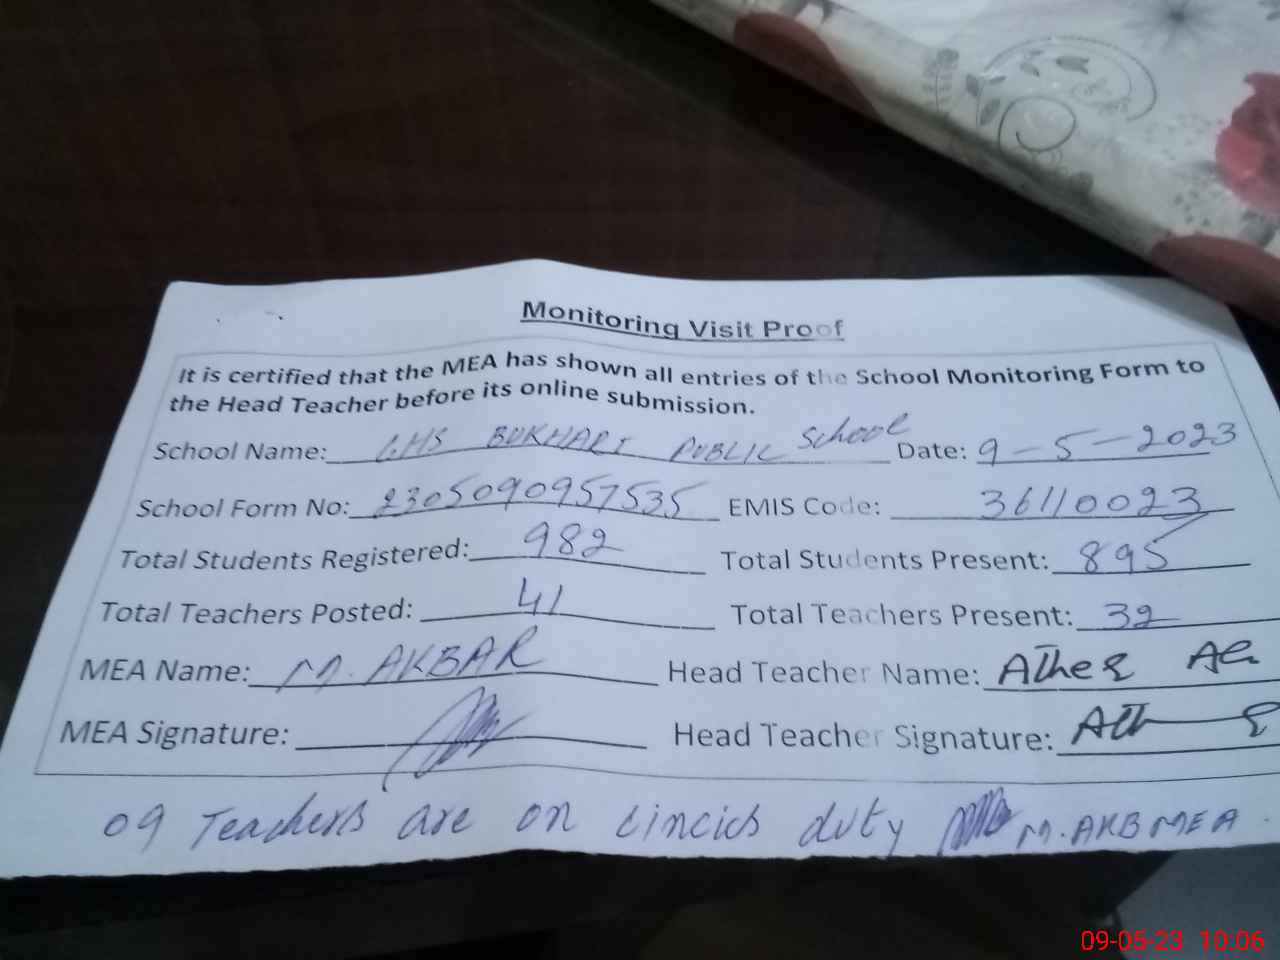 Monitoring Visit Proof
It is certified that the MEA has shown all entries of the School Monitoring Form to
the Head Teacher before its online submission.
School Name: GHS BUKHARI PUBLIC School Date: 9-5-2023
School Form No: 2305090957535 EMIS Code: 36110023
Total Students Registered: 982 Total Students Present: 895
Total Teachers Posted: 41 Total Teachers Present: 32
MEA Name: M. AKBAR Head Teacher Name: ATher Ali
MEA Signature: Head Teacher Signature:
09 Teachers are on duty M. AKB MEA
09-05-23 10:06